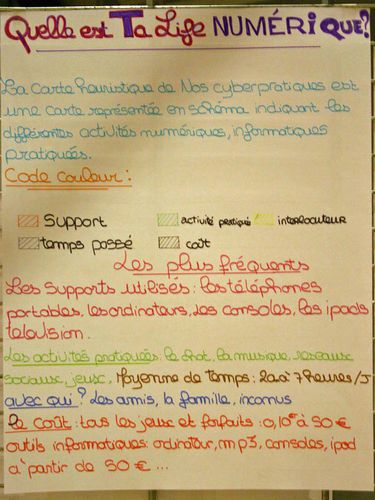 Quelle est Ta Life NUMÉRiQUE?
La carte heuristique de Nos cyberpratiques est
une carte représentée en schéma indiquant les
différentes activités numériques, informatiques
pratiquées.
Code couleur :
Support activité pratiqué interlocuteur
temps passé coût
Les plus fréquents
Les supports utilisés : les téléphones
portables, les ordinateurs, les consoles, les ipods
television.
Les activités pratiquées : le chat, la musique, reseaux
sociaux, jeux, Moyenne de temps : 2 à 7 heures/J
avec qui ? Les amis, la famille, inconus
Le coût : tous les jeux et forfaits : 0,10€ à 50 €
outils informatiques : ordinateur, mp3, consoles, ipod
à partir de 50 € ...